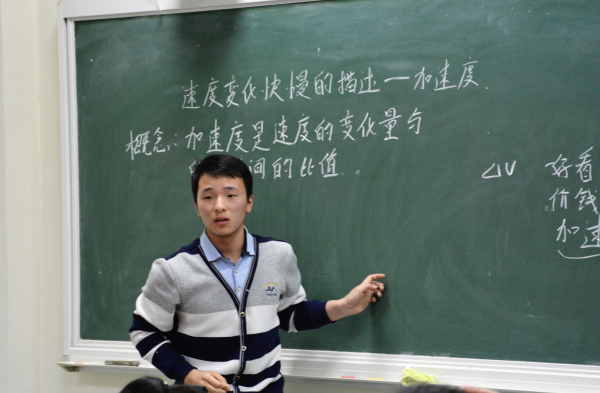 速度变化快慢的描述—加速度
概念:加速度是速度的变化量与
间的比值
△V
好看
价钱
加速